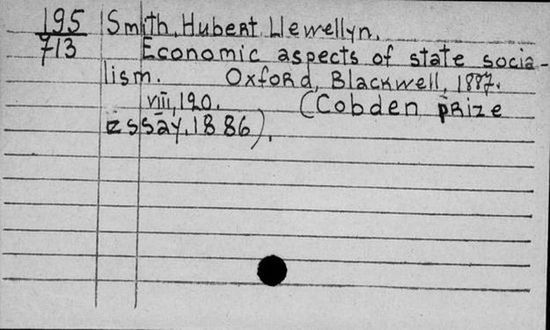 195 Smith, Hubert Llewellyn.
713 Economic aspects of state socia-
lism. Oxford, Blackwell, 1887.
viii, 120. (Cobden prize
essay, 1886).